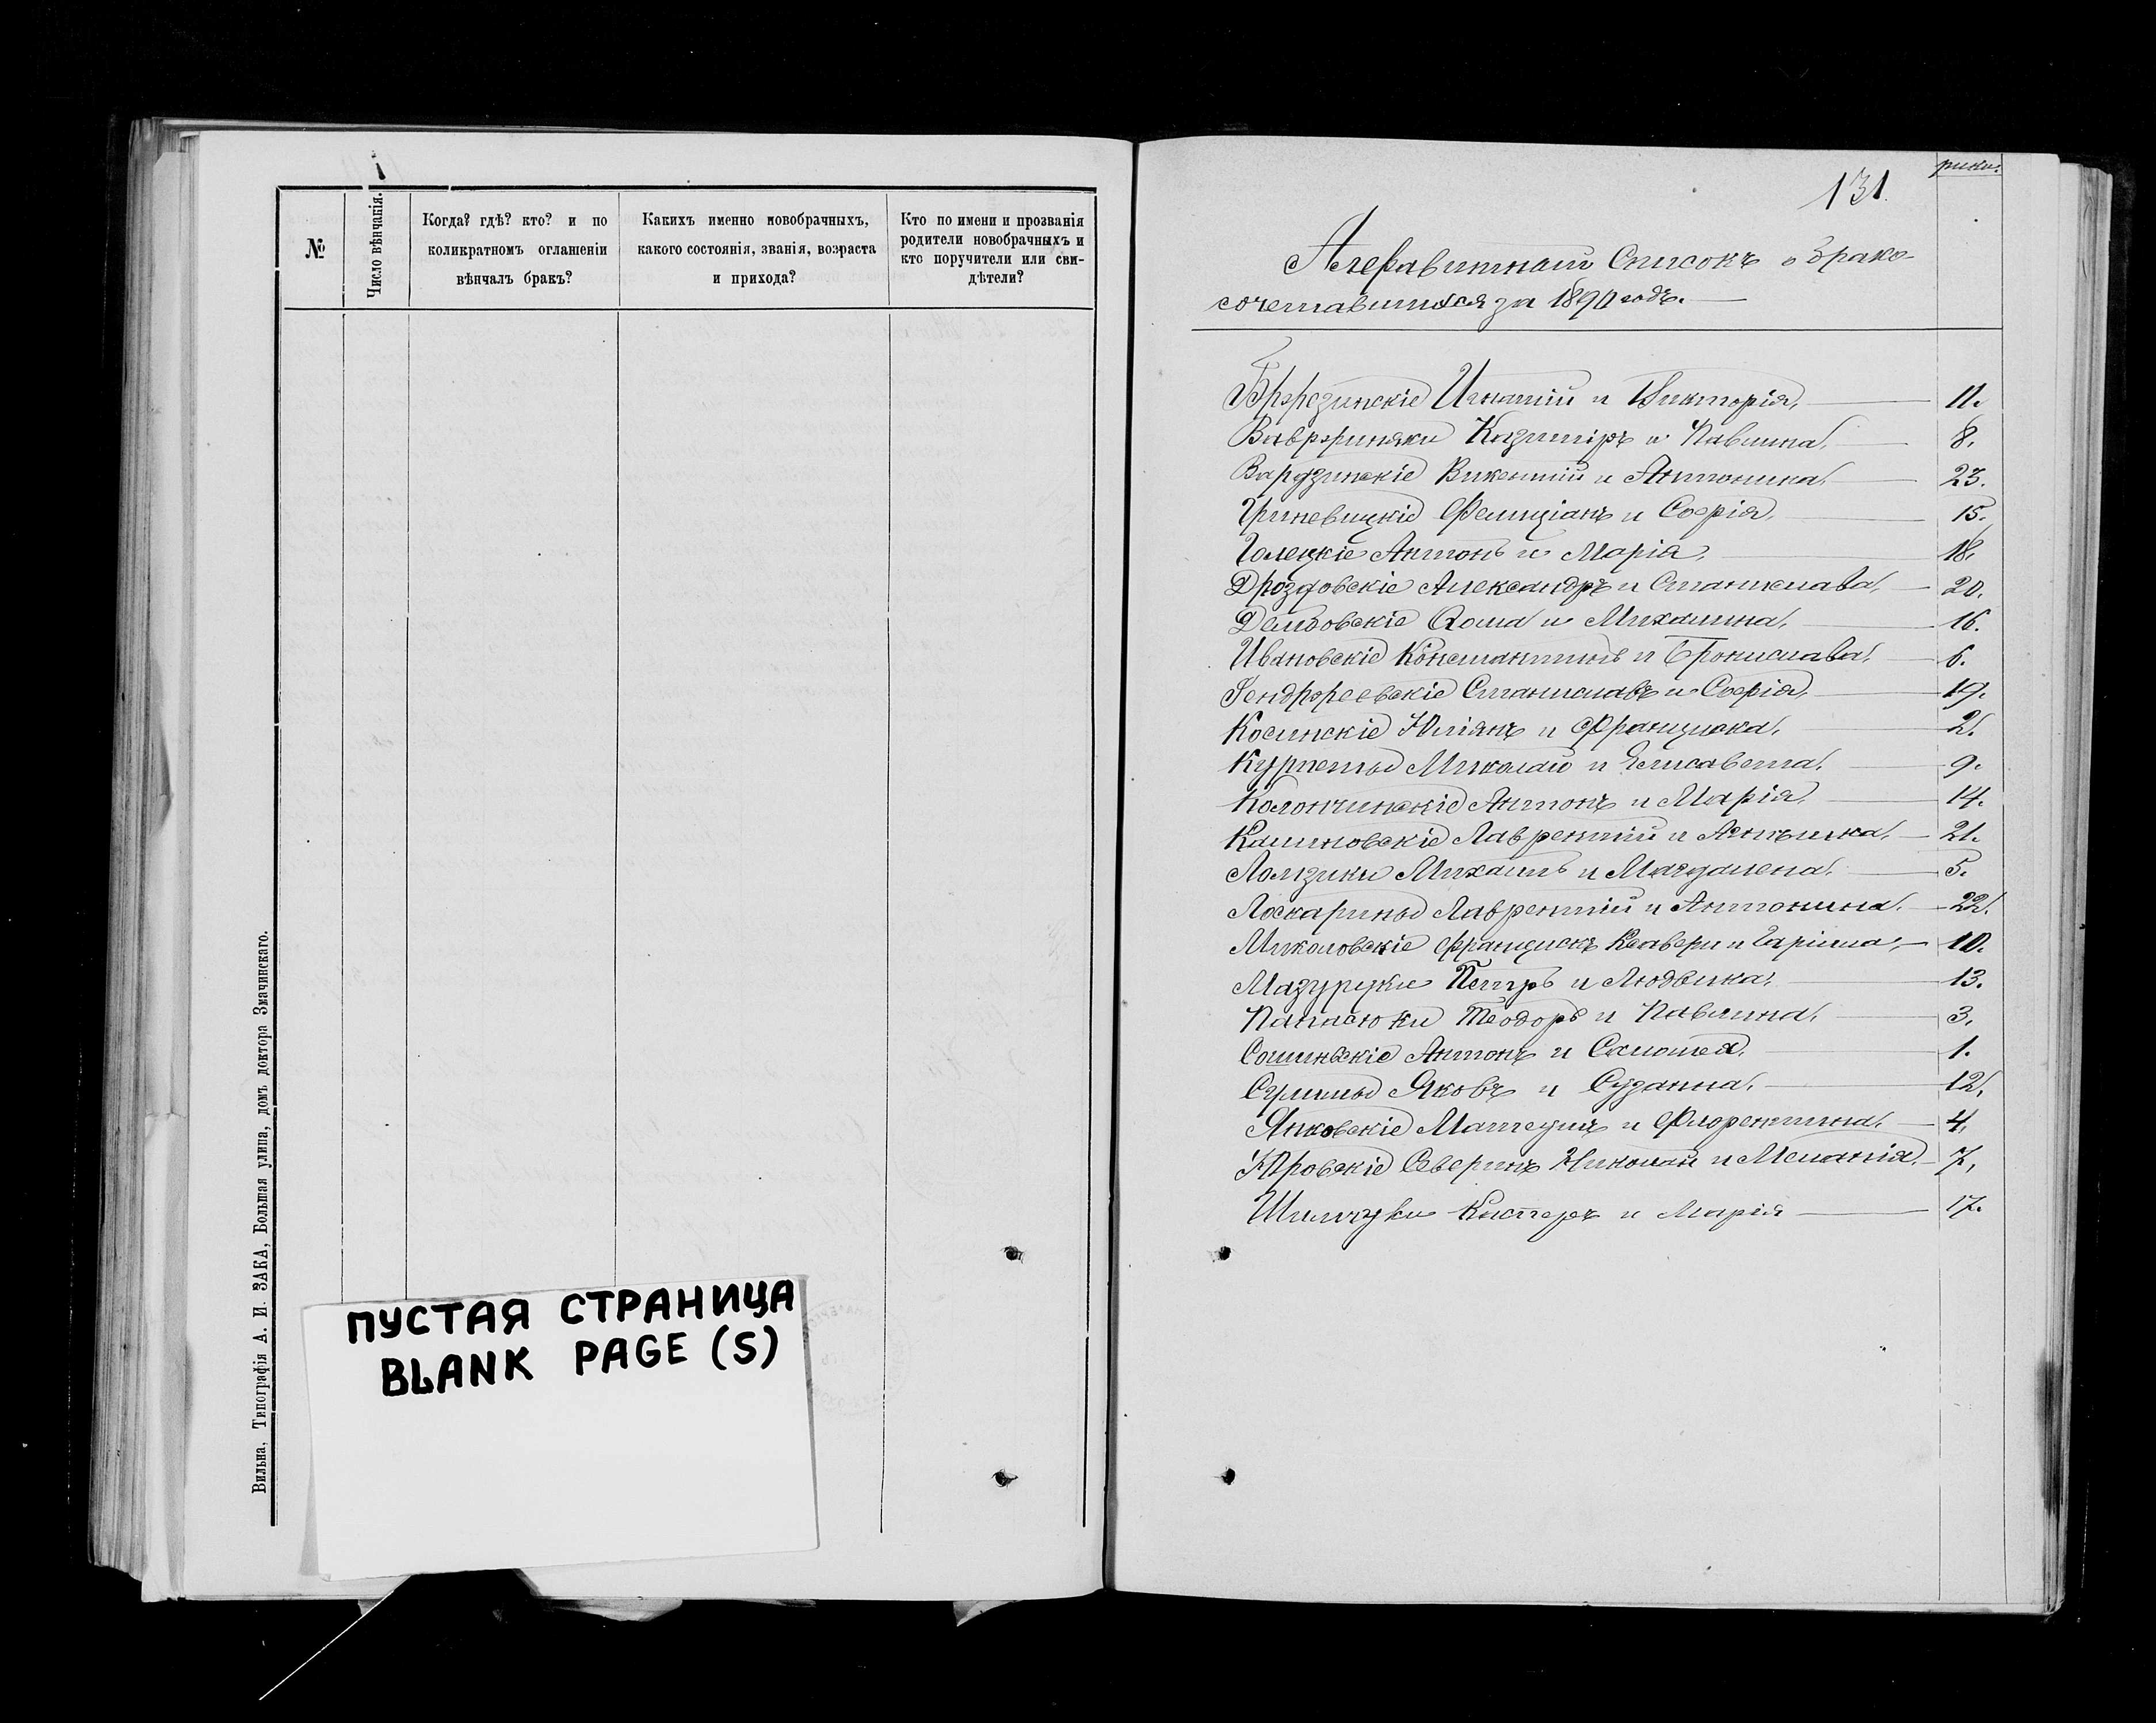 №
Число вѣнчанія.
Когда? гдѣ? кто? и по
коликратномъ оглашеніи
вѣнчалъ бракъ?
Какихъ именно новобрачныхъ,
какого состоянія, званія, возраста
и прихода?
Кто по имени и прозванія
родители новобрачныхъ и
кто поручители или сви-
дѣтели?
Вильна, Типографія А. И. ЗАКА, Большая улица, домъ доктора Змачинскаго.
ПУСТАЯ СТРАНИЦА
BLANK PAGE (S)
131.
Списокъ о Брако-
сочетавшихся за 1890 годъ.
Брезинскіе Игнатій и Викторія, 11.
Казиміръ и Павлина, 8.
Вардзинскіе Викентій и Антонина, 23.
Гриневицкіе Фелиціанъ и Софія, 15.
Голецкіе Антонъ и Марія, 18.
Дроздовскіе Александръ и Станислава, 20.
Ѳома и Михалина, 16.
Ивановскіе Константинъ и Бронислава, 6.
Станиславъ и Софія, 19.
Косинскіе Юліянъ и Франциска, 2.
Миколай и Елисавета, 9.
Колончинскіе Антонъ и Марія, 14.
Калиновскіе Лаврентій и 21.
Ломзики Михаилъ и Магдалена, 5.
Лоскарины Лаврентій и Антонина, 22.
Миколовскіе Францискъ Ксавери и 10.
Петръ и Людвика, 13.
Панасюки Теодоръ и Павлина, 3.
Антонъ и Саломея, 1.
Сулимы Яковъ и Сузанна, 12.
Янковскіе и Флорентина, 4.
Юровскіе Северинъ Николай и Меланія, 7.
и Марія 17.